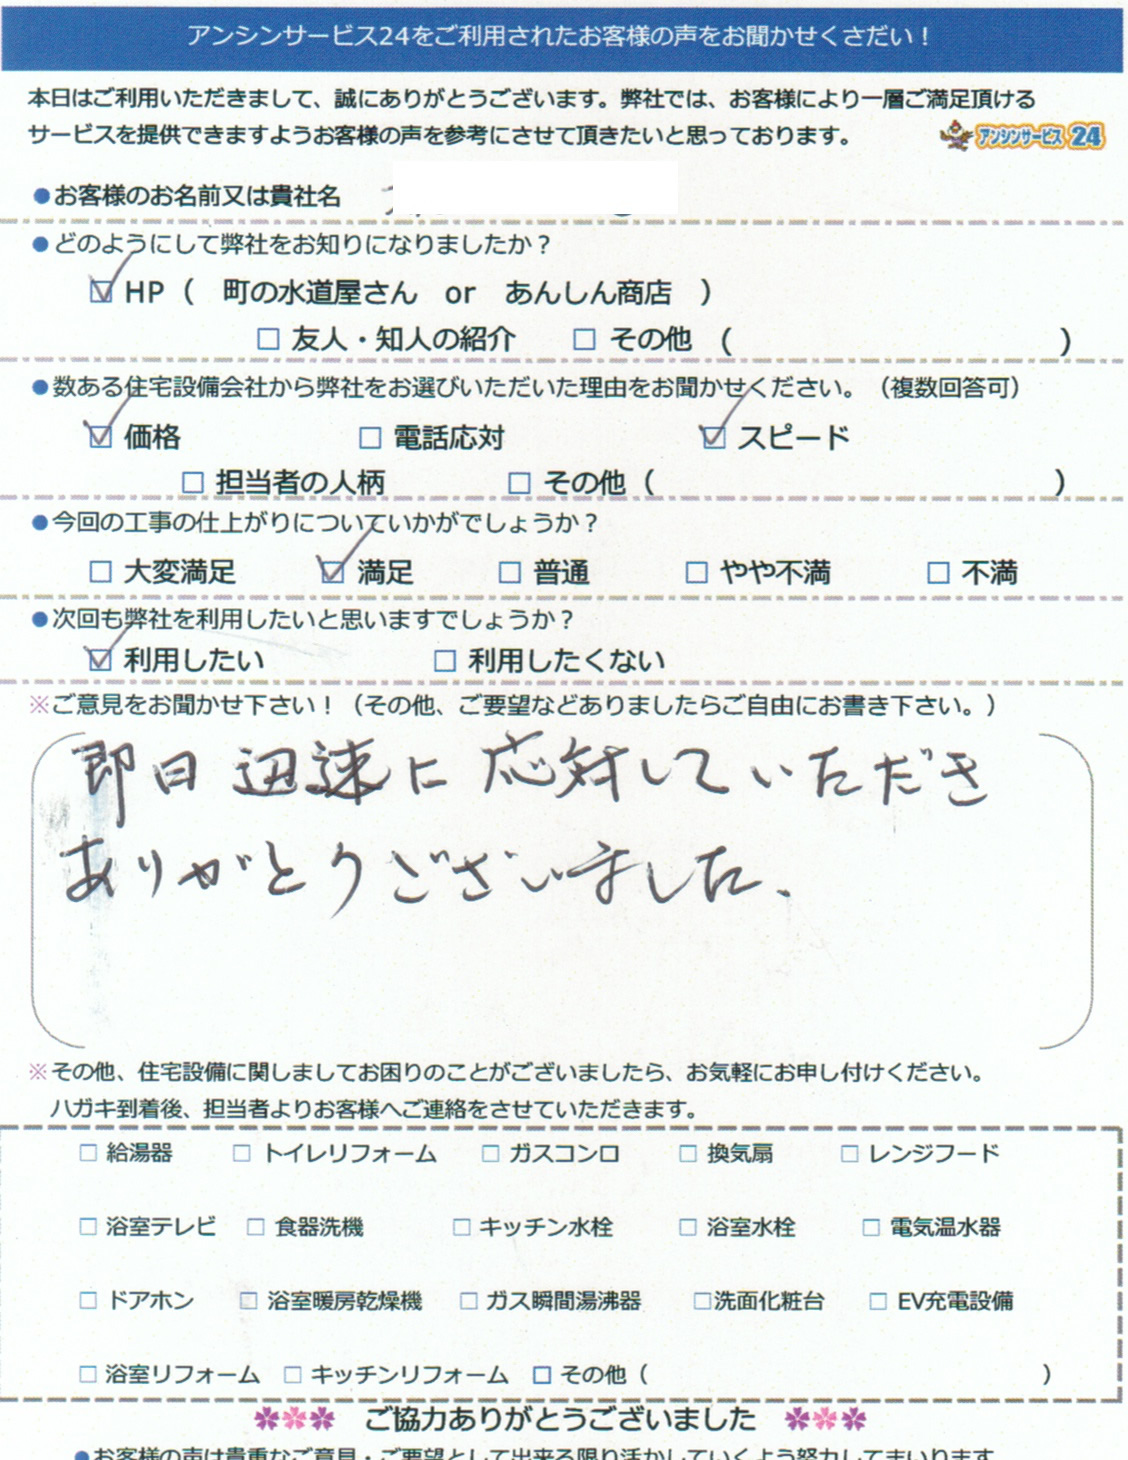 アンシンサービス24をご利用されたお客様の声をお聞かせくさだい！
本日はご利用いただきまして、誠にありがとうございます。弊社では、お客様により一層ご満足頂ける
サービスを提供できますようお客様の声を参考にさせて頂きたいと思っております。
アンシンサービス24
●お客様のお名前又は貴社名
●どのようにして弊社をお知りになりましたか？
☑ HP（　町の水道屋さん　or　あんしん商店　）
□ 友人・知人の紹介　□ その他　（　）
●数ある住宅設備会社から弊社をお選びいただいた理由をお聞かせください。（複数回答可）
☑ 価格　□ 電話応対　☑ スピード
□ 担当者の人柄　□ その他（　）
●今回の工事の仕上がりについていかがでしょうか？
□ 大変満足　☑ 満足　□ 普通　□ やや不満　□ 不満
●次回も弊社を利用したいと思いますでしょうか？
☑ 利用したい　□ 利用したくない
※ご意見をお聞かせ下さい！（その他、ご要望などありましたらご自由にお書き下さい。）
即日迅速に応対していただき
ありがとうございました、
※その他、住宅設備に関しましてお困りのことがございましたら、お気軽にお申し付けください。
ハガキ到着後、担当者よりお客様へご連絡をさせていただきます。
□ 給湯器　□ トイレリフォーム　□ ガスコンロ　□ 換気扇　□ レンジフード
□ 浴室テレビ　□ 食器洗機　□ キッチン水栓　□ 浴室水栓　□ 電気温水器
□ ドアホン　□ 浴室暖房乾燥機　□ ガス瞬間湯沸器　□洗面化粧台　□ EV充電設備
□ 浴室リフォーム　□ キッチンリフォーム　□ その他（　）
ご協力ありがとうございました
●お客様の声は貴重なご意見・ご要望として出来る限り活かしていくよう努力してまいります